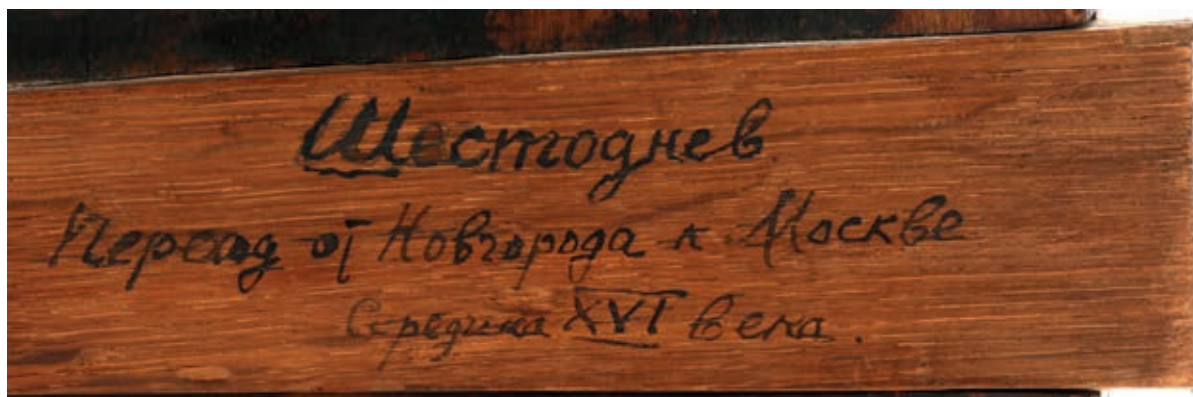 Шестоднев
Переход от Новгорода к Москве
Середина XVI века.